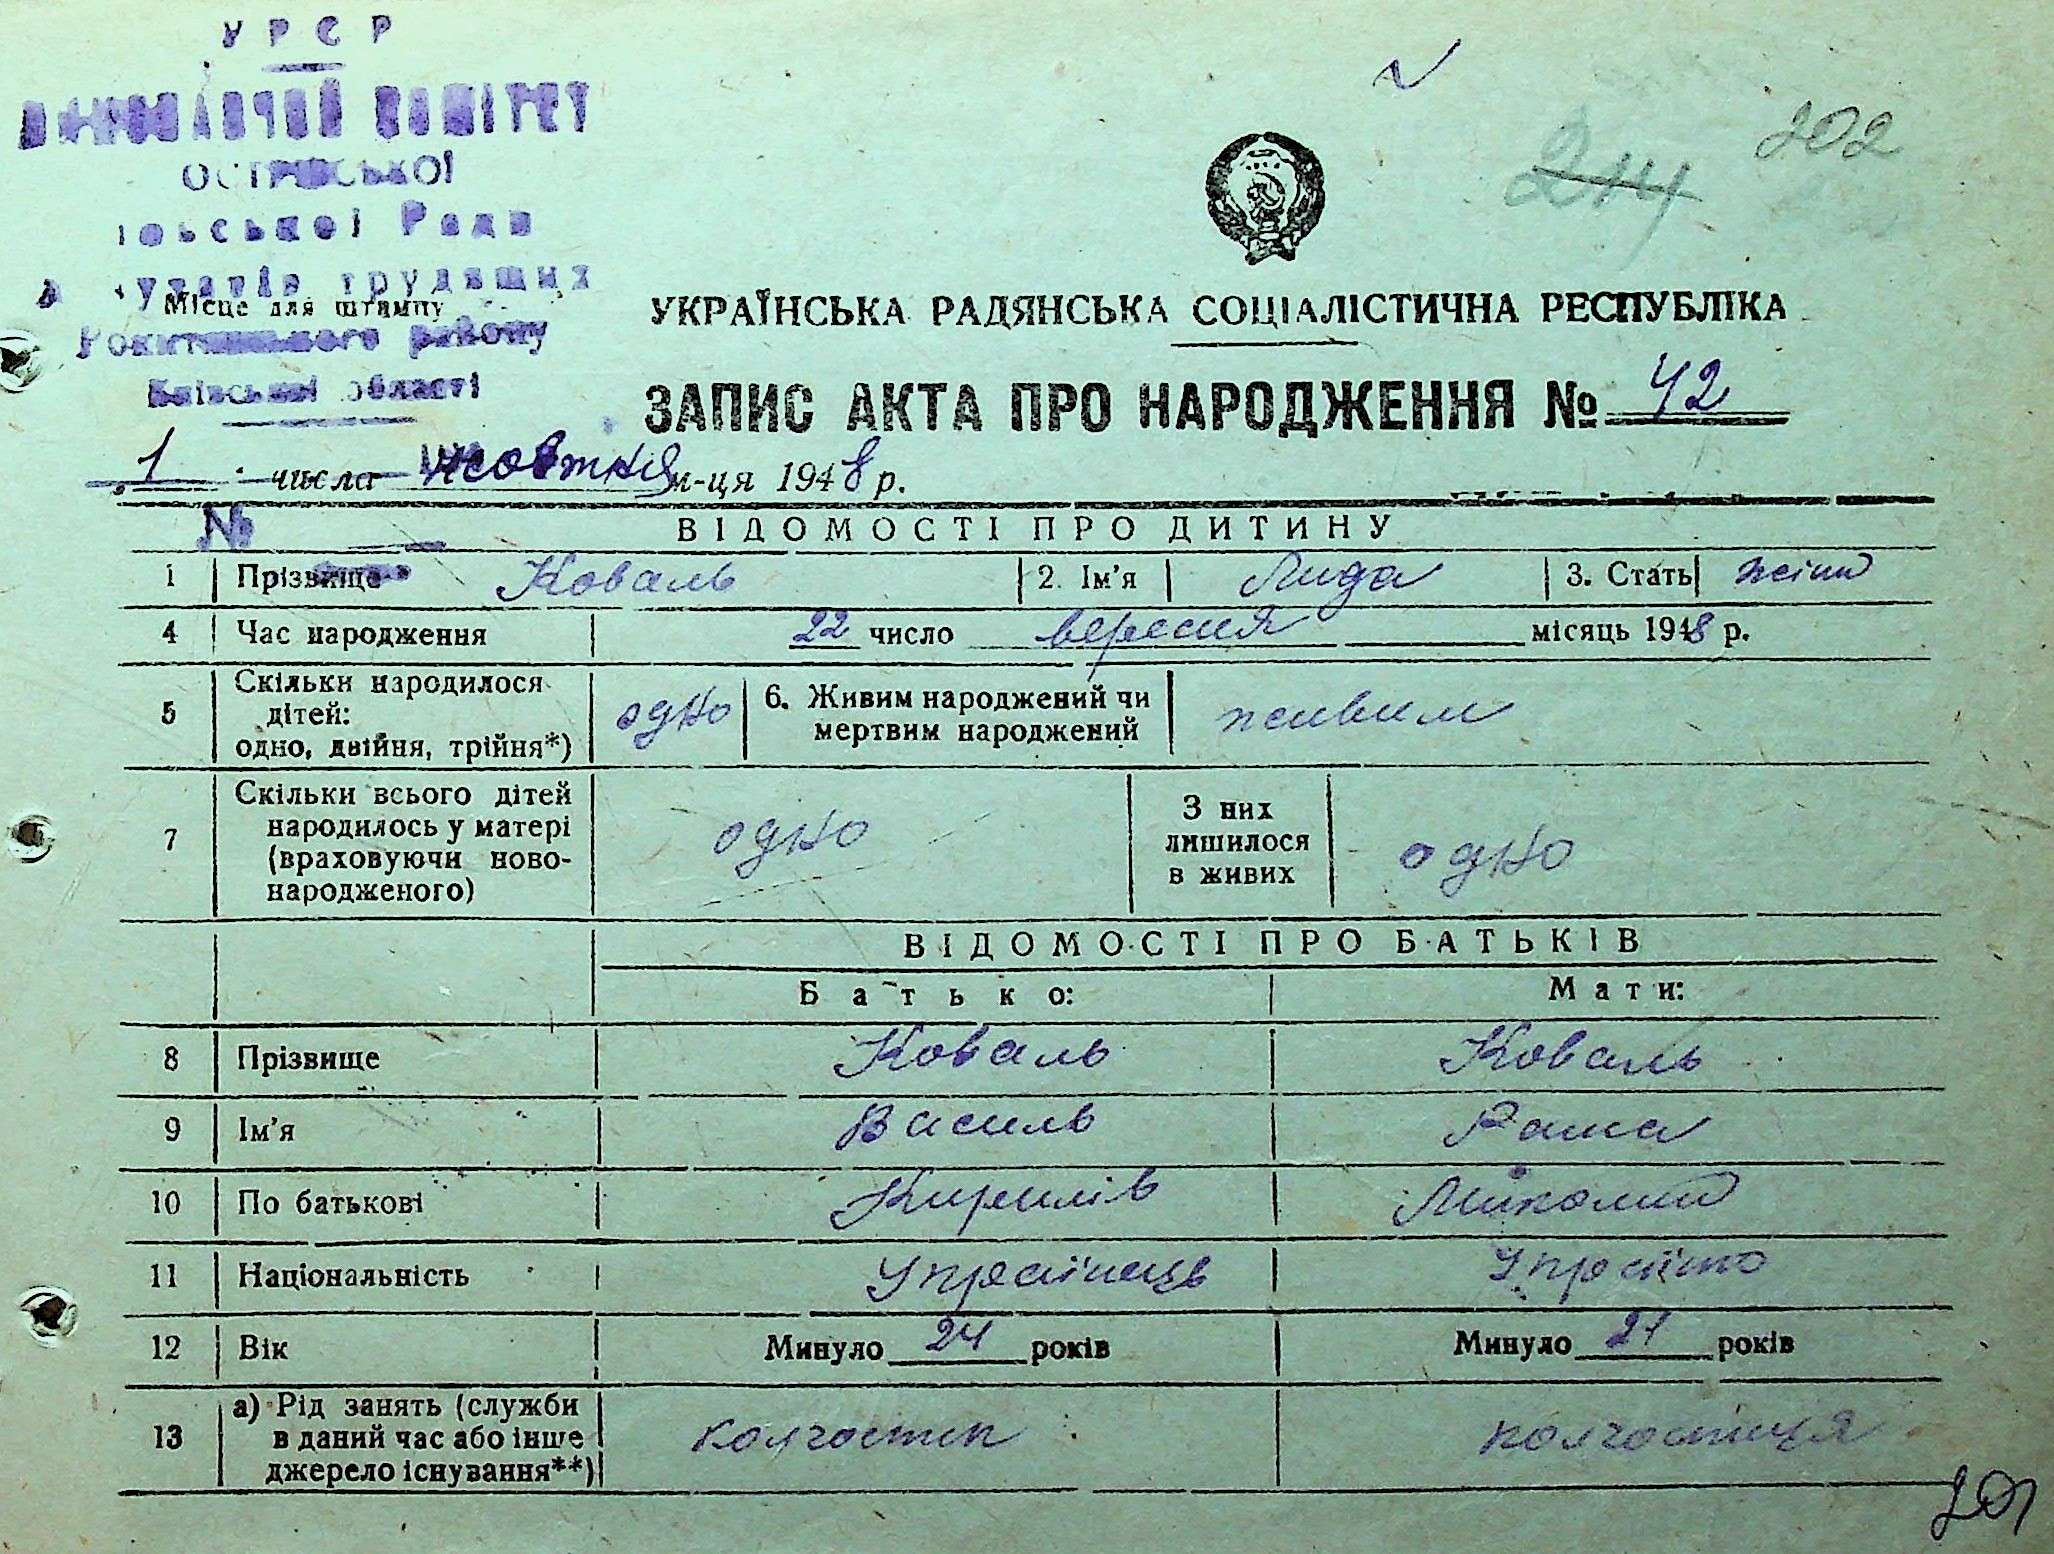 УРСР
ВИКОНАВЧИЙ КОМІТЕТ
ОСТРІВСЬКОЇ
Ради
трудящих
Місце для штампу
Рокитнянського району
Київської області
202
214
УКРАЇНСЬКА РАДЯНСЬКА СОЦІАЛІСТИЧНА РЕСПУБЛІКА
ЗАПИС АКТА ПРО НАРОДЖЕННЯ № 42
1 числа жовтня м-ця 1948 р.
№ ВІДОМОСТІ ПРО ДИТИНУ
1 Прізвище Коваль 2. Ім'я Лида 3. Стать жіни
4 Час народження 22 число вересня місяць 1948 р.
5 Скільки народилося дітей: одно, двійня, трійня*) одно 6. Живим народжений чи мертвим народжений живим
7 Скільки всього дітей народилось у матері (враховуючи ново-народженого) одно З них лишилося в живих одно
ВІДОМОСТІ ПРО БАТЬКІВ
Батько: Мати:
8 Прізвище Коваль Коваль
9 Ім'я Василь
10 По батькові Кирилів
11 Національність Українець
12 Вік Минуло 24 років Минуло 21 років
13 а) Рід занять (служби в даний час або інше джерело існування**)
201